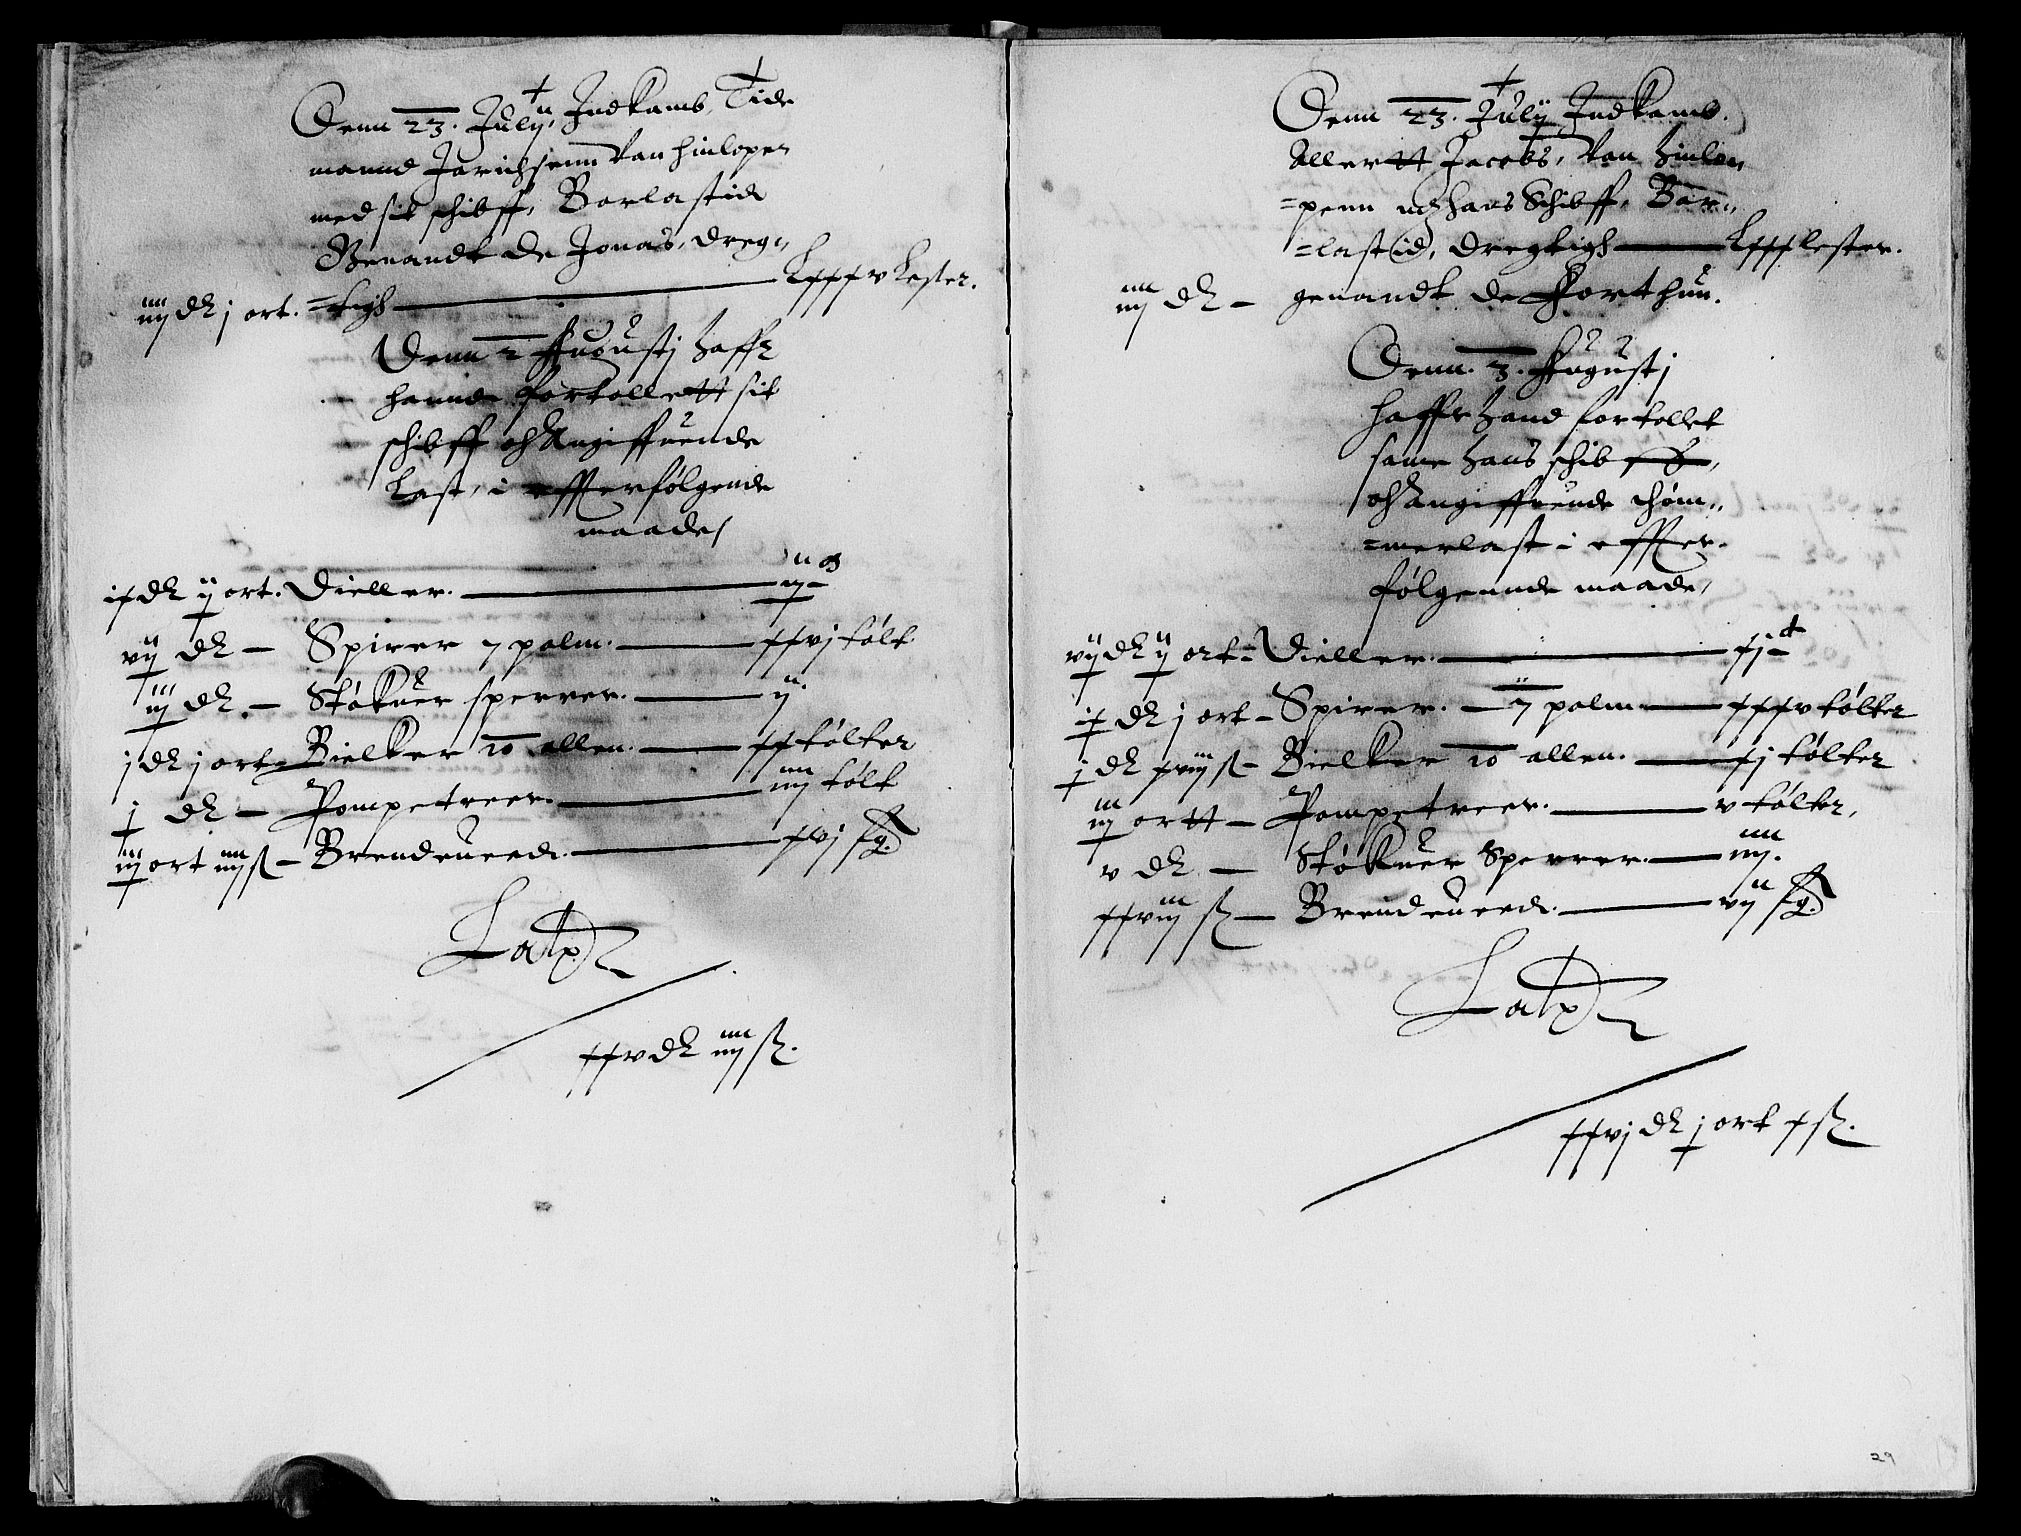 Denn 23. Julij, Indkamb, Tide
mannd Jarichsenn van hinlopen
med sit schibff, Barlastid
Benandt de Jonas, dreg„
iiij dlr j ort. =tigh — Lxxxv Lester.
Denn 2 Augustj haffr
hannd fortollett sit
schibff och Angiffuende
Last, i effterfølgende
maade/
ix dlr ij ort. Dieller. —
vij dlr — Spirer 7 palm. — xxvj tølt
iij dlr. — Støkuer sperrer. — ij.
j dlr j ort — Bielker 10 allen. — xx tølter
j dlr — Pompetreer. — iiij tølt
iij ort iiij ß — Brendeueed. — xvj fg.
Latp
xxv dlr iiij ß.
Denn 23. Julij Indkamb.
Allertt Jacobs, van Hinlou
=penn med hans Schibff, Bar„
=lastid, dregtigh — Lxxx lester.
iiij dlr — genandt de Forthun.
Denn. 3. Augustj
haffr hand fortollet
same hans schibff,
och angiffuende thøm„
=merlast i effter
følgennde maade,
vij dlr ij ort — Dieller. — xj
ix dlr j ort — Spirer. — 7 palm. — xxxv tølter
j dlr xviij ß — Bielker 10 allen. — xj tølter
iij ortt — Pompetreer. — v tølter,
v dlr — Støkuer Sperrer. — iiij.
xxviij ß — Brendeueed. — vij fg.
Latp
xxvj dlr j ort x ß.
29